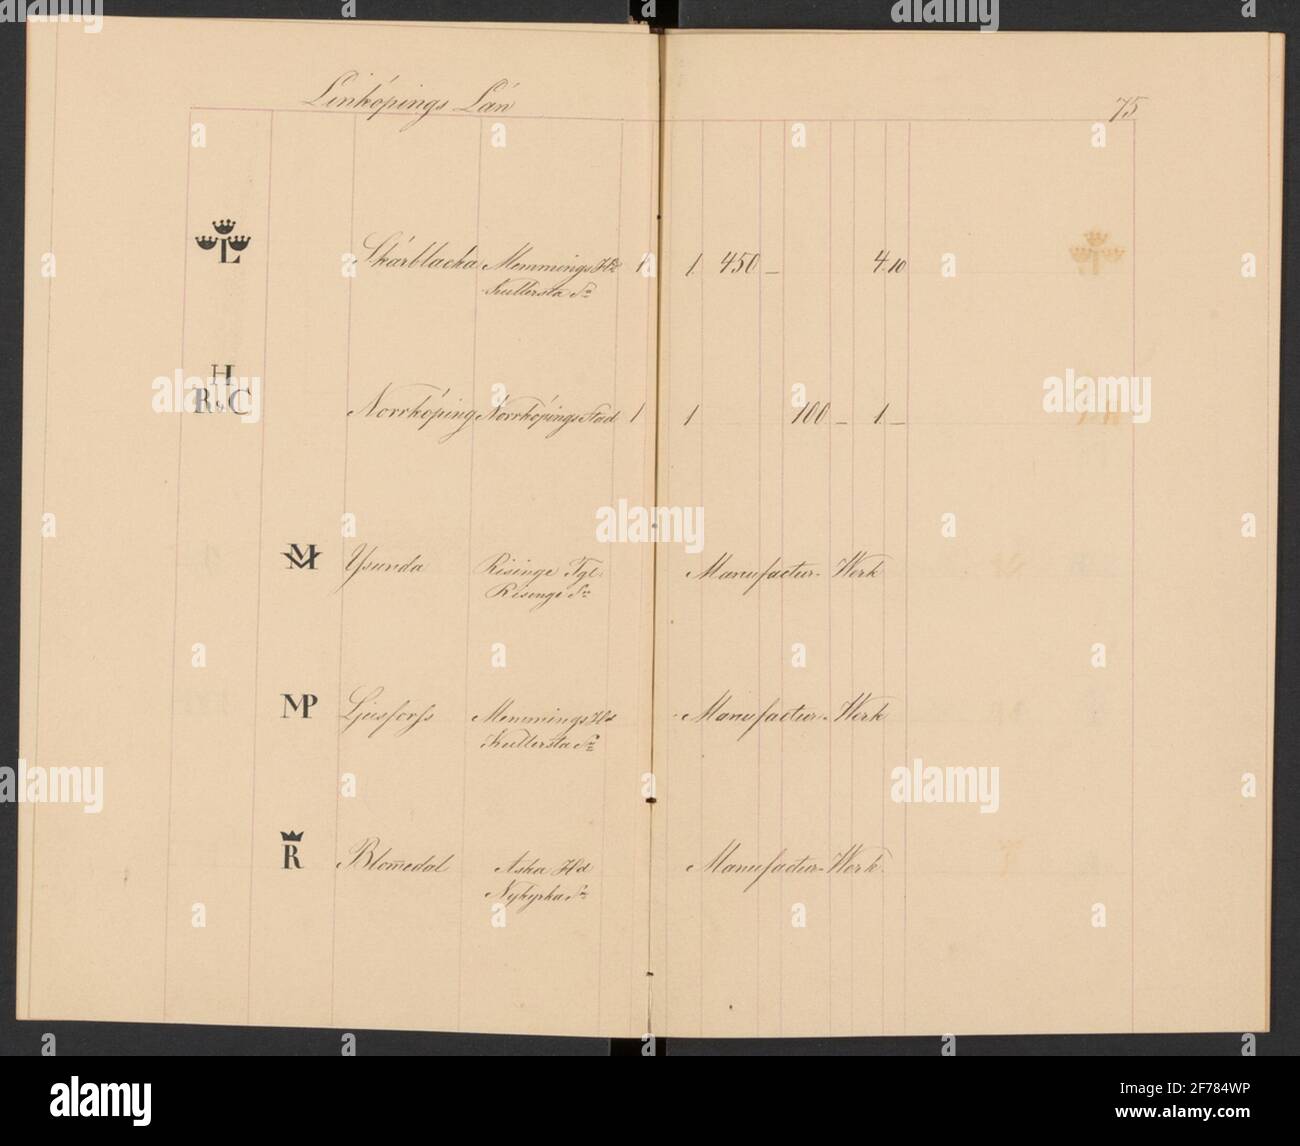 Linköpings Län
75
L
Skärblacka Memmings Hd 1 1 450 – 4 10
Kullersta Sn
H
R & C
Norrköping Norrköpings Stad 1 1 100 – 1 –
M
Ysunda Risinge Tgl. Manufactur-Werk
Risinge Sn
MP
Ljusforss Memmings Hd Manufactur-Werk
Kullersta Sn
R
Blomedal Aska Hd Manufactur-Werk
Nykyrka Sn
alamy
alamy
Image ID: 2F784WP
www.alamy.com